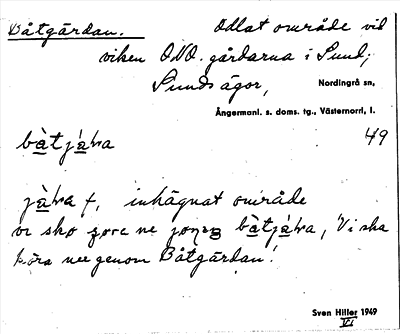 Båtgårdan. Odlat område vid
viken O.N.O. gårdarna i Sund;
Sunds ägor, Nordingrå sn,
Ångermanl. s. doms. tg., Västernorrl. l.
bàtjáɽa 49
jàɽa f, inhägnat område
vi ska ne bàtjáɽa, Vi ska
köra ner genom Båtgårdan!
Sven Hiller 1949
VI